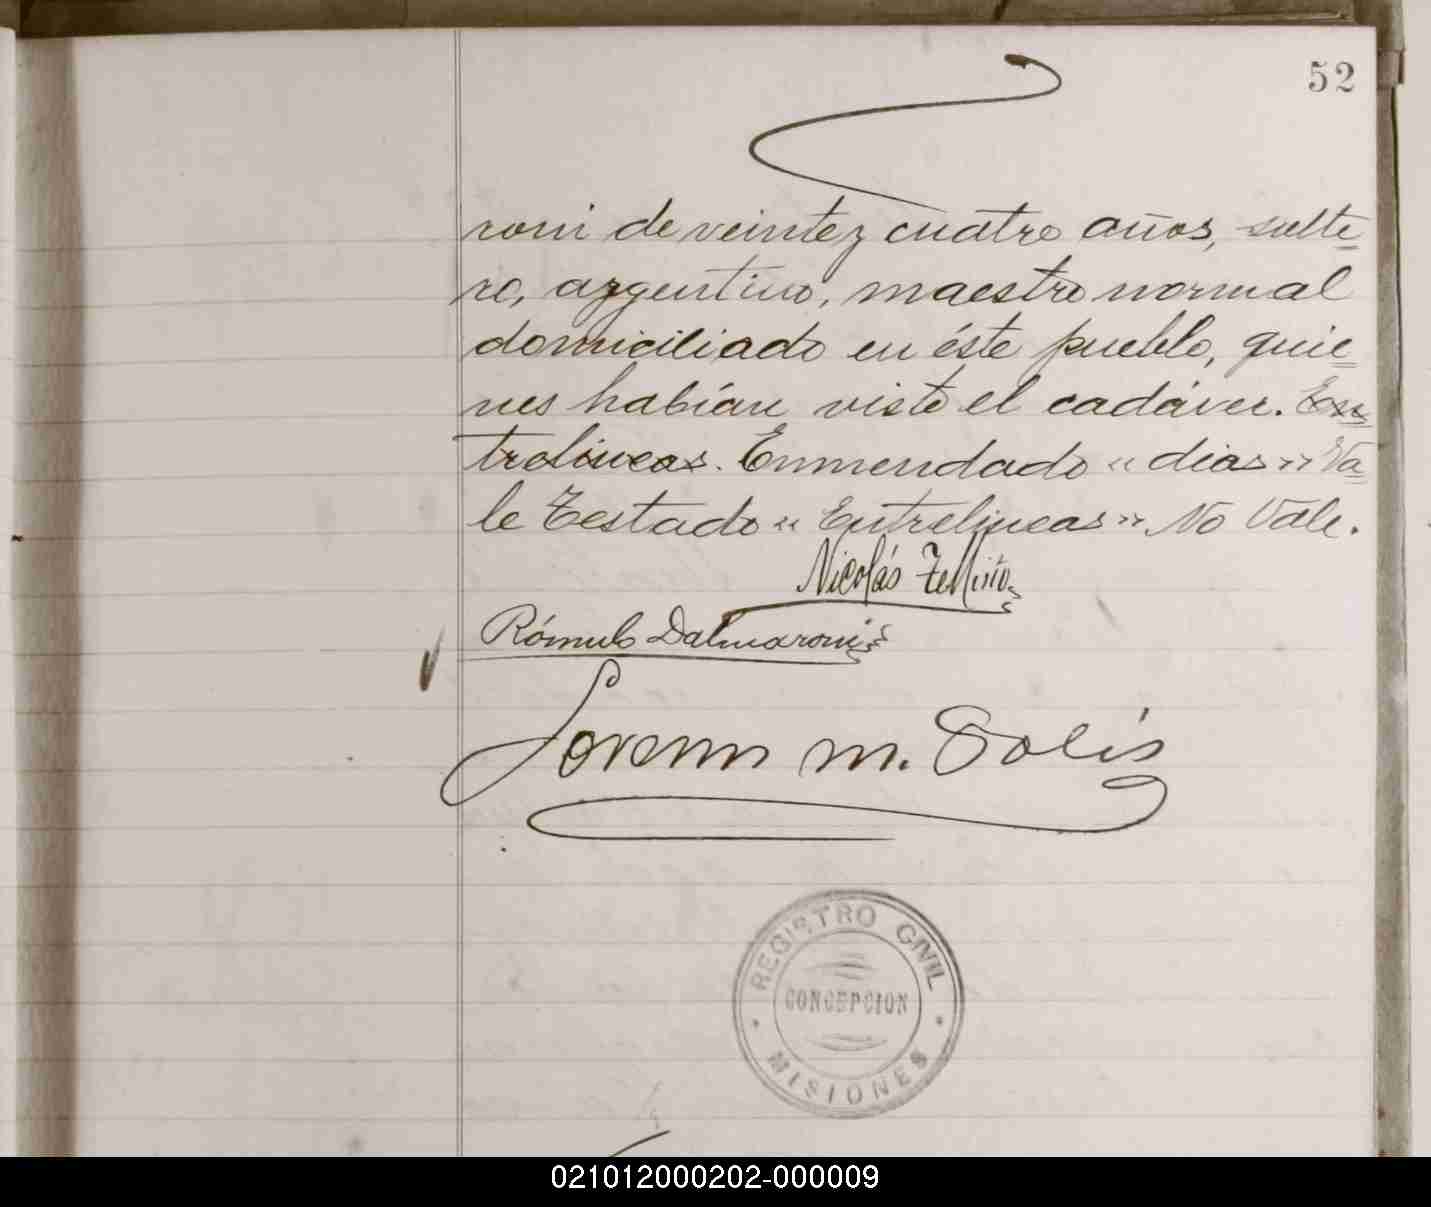 52
roni de veinte y cuatro años, solte=
ro, argentino, maestro normal
domiciliado en éste pueblo, quie=
nes habían visto el cadáver. En=
trelíneas. Enmendado "dias" Va=
le Testado "Entrelineas" No Vale.
Nicolás
Rómulo Dalmaroni
m. Solís
REGISTRO CIVIL
CONCEPCION
MISIONES
021012000202-000009